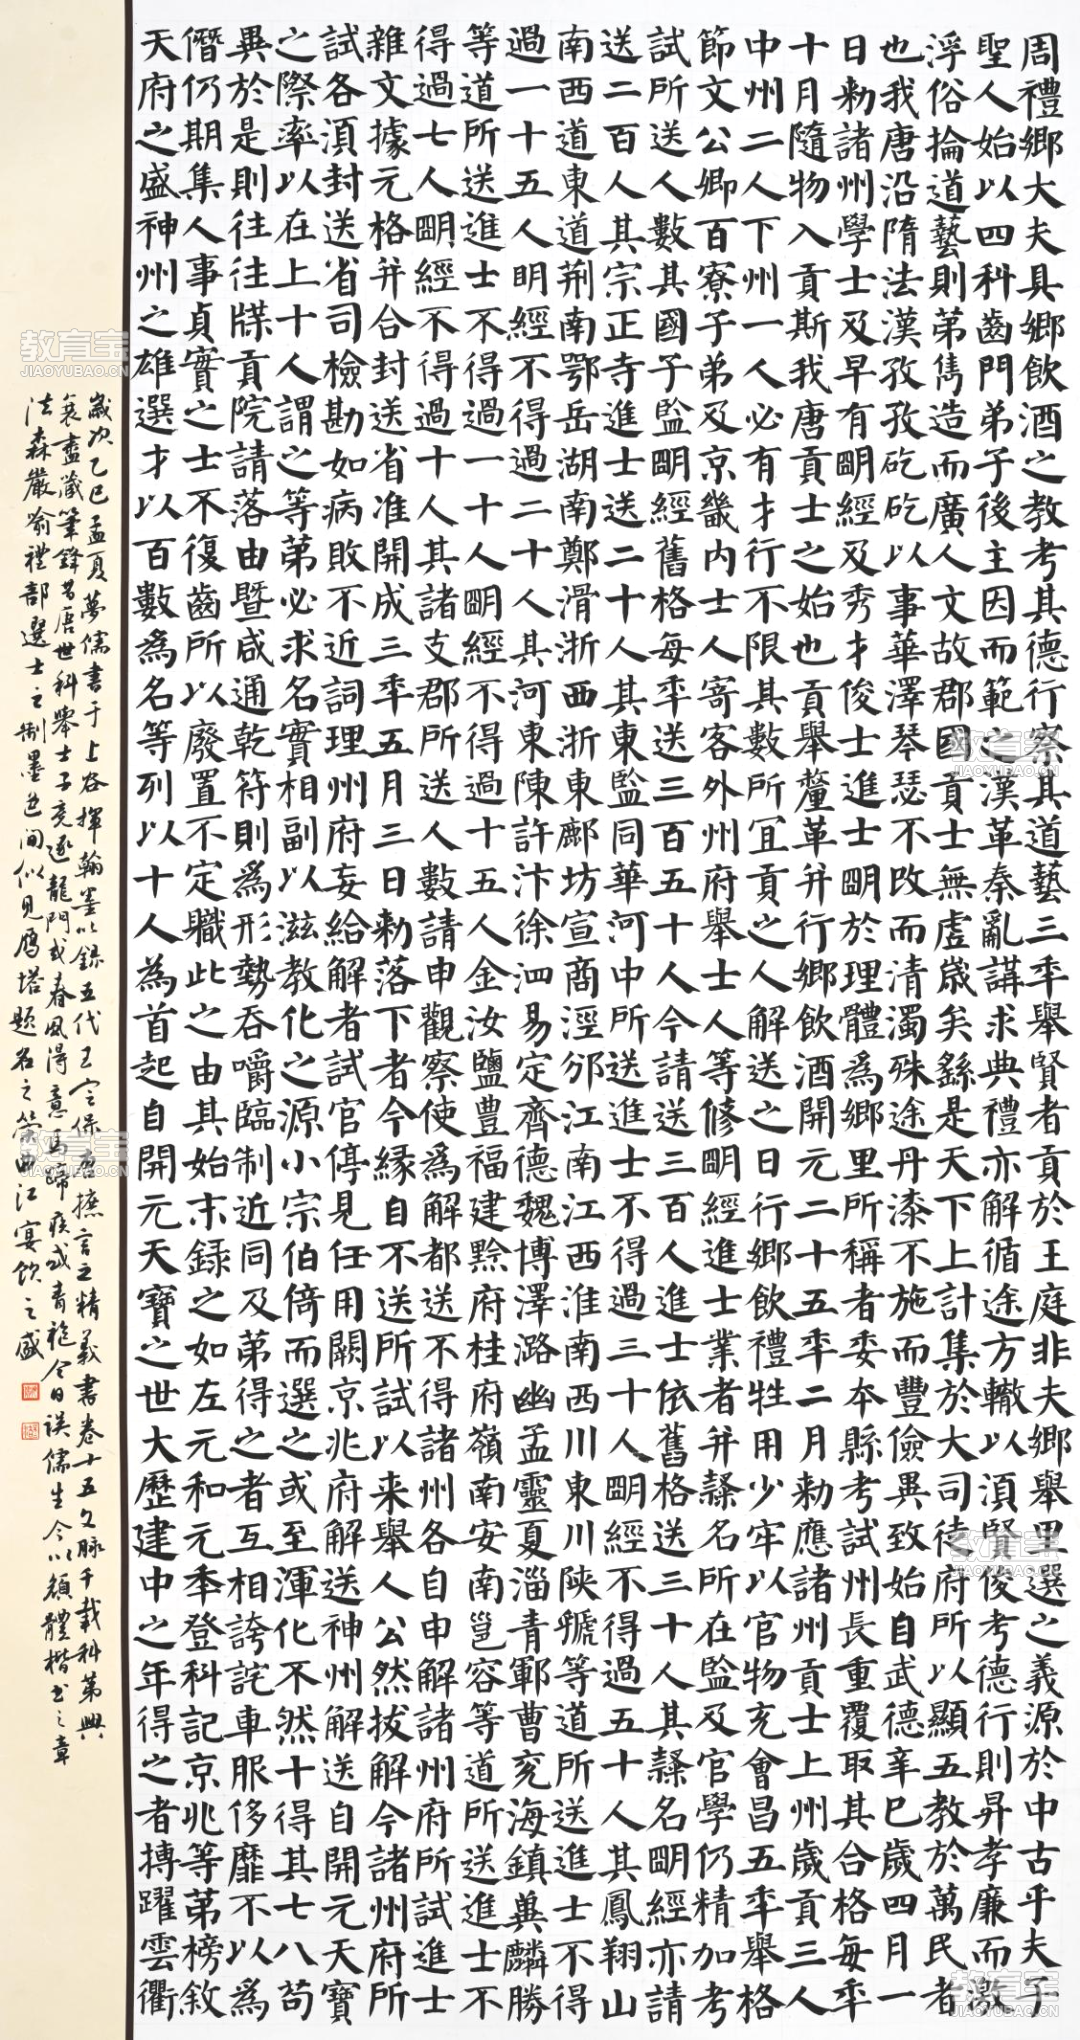 周禮鄉大夫具鄉飲酒之教考其德行察其道藝三年舉賢者貢於王庭非夫鄉舉里選之義源於中古乎夫子
聖人始以四科齒門弟子後主因而範之漢革秦亂講求典禮亦解循途方轍以須賢俊考德行則昇孝廉而激
浮俗掄道藝則第雋造而廣人文故郡國貢士無虛歲矣繇是天下上計集於大司徒府所以顯五教於萬民者
也我唐沿隋法漢孜孜矻矻以事華澤琴瑟不改而清濁殊途丹漆不施而豐儉異致始自武德辛巳歲四月一
日勅諸州學士及早有明經及秀才俊士進士明於理體為鄉里所稱者委本縣考試州長重覆取其合格每年
十月隨物入貢斯我唐貢士之始也貢舉釐革并行鄉飲酒開元二十五年二月勅應諸州貢士上州歲貢三人
中州二人下州一人必有才行不限其數所宜貢之人解送之日行鄉飲禮牲用少牢以官物充會昌五年舉格
節文公卿百寮子弟及京畿內士人寄客外州府舉士人等修明經進士業者并隸名所在監及官學仍精加考
試所送人數其國子監明經舊格每年送三百五十人今請送三百人進士依舊格送三十人其隸名明經亦請
送二百人其宗正寺進士送二十人其東監同華河中所送進士不得過三十人明經不得過五十人其鳳翔山
南西道東道荊南鄂岳湖南鄭滑浙西浙東鄜坊宣商涇邠江南江西淮南西川東川陝虢等道所送進士不得
過一十五人明經不得過二十人其河東陳許汴徐泗易定齊德魏博澤潞幽孟靈夏淄青鄆曹兗海鎮冀麟勝
等道所送進士不得過一十人明經不得過十五人金汝鹽豊福建黔府桂府嶺南安南邕容等道所送進士不
得過七人明經不得過十人其諸支郡所送人數請申觀察使為解都送不得諸州各自申解諸州府所試進士
雜文據元格并合封送省准開成三年五月三日勅落下者今緣自不送所試以来舉人公然拔解今諸州府所
試各須封送省司檢勘如病敗不近詞理州府妄給解者試官停見任用闕京兆府解送神州解送自開元天寶
之際率以在上十人謂之等第必求名實相副以滋教化之源小宗伯倚而選之或至渾化不然十得其七八苟
異於是則往往牒貢院請落由暨咸通乾符則為形勢吞嚼臨制近同及第得之者互相誇詫車服侈靡不以為
僭仍期集人事貞實之士不復齒所以廢置不定職此之由其始末録之如左元和元年登科記京兆等第榜敘
天府之盛神州之雄選才以百數為名等列以十人為首起自開元天寶之世大歷建中之年得之者摶躍雲衢
歲次乙巳孟夏夢儒書于上谷揮翰墨以録五代王定保唐摭言之精義書卷十五文脉千載科第興
衰盡藏筆鋒昔唐世科舉士子竞逐龍門或春風得意馬蹄疾或青袍今日誤儒生今以顏體楷书之章
法森嚴喻禮部選士之制墨色间似見雁塔题名之榮曲江宴饮之盛
教育宝
JIAOYUBAO.CN
教育宝
JIAOYUBAO.CN
教育宝
JIAOYUBAO.CN
教育宝
JIAOYUBAO.CN
教育宝
JIAOYUBAO.CN